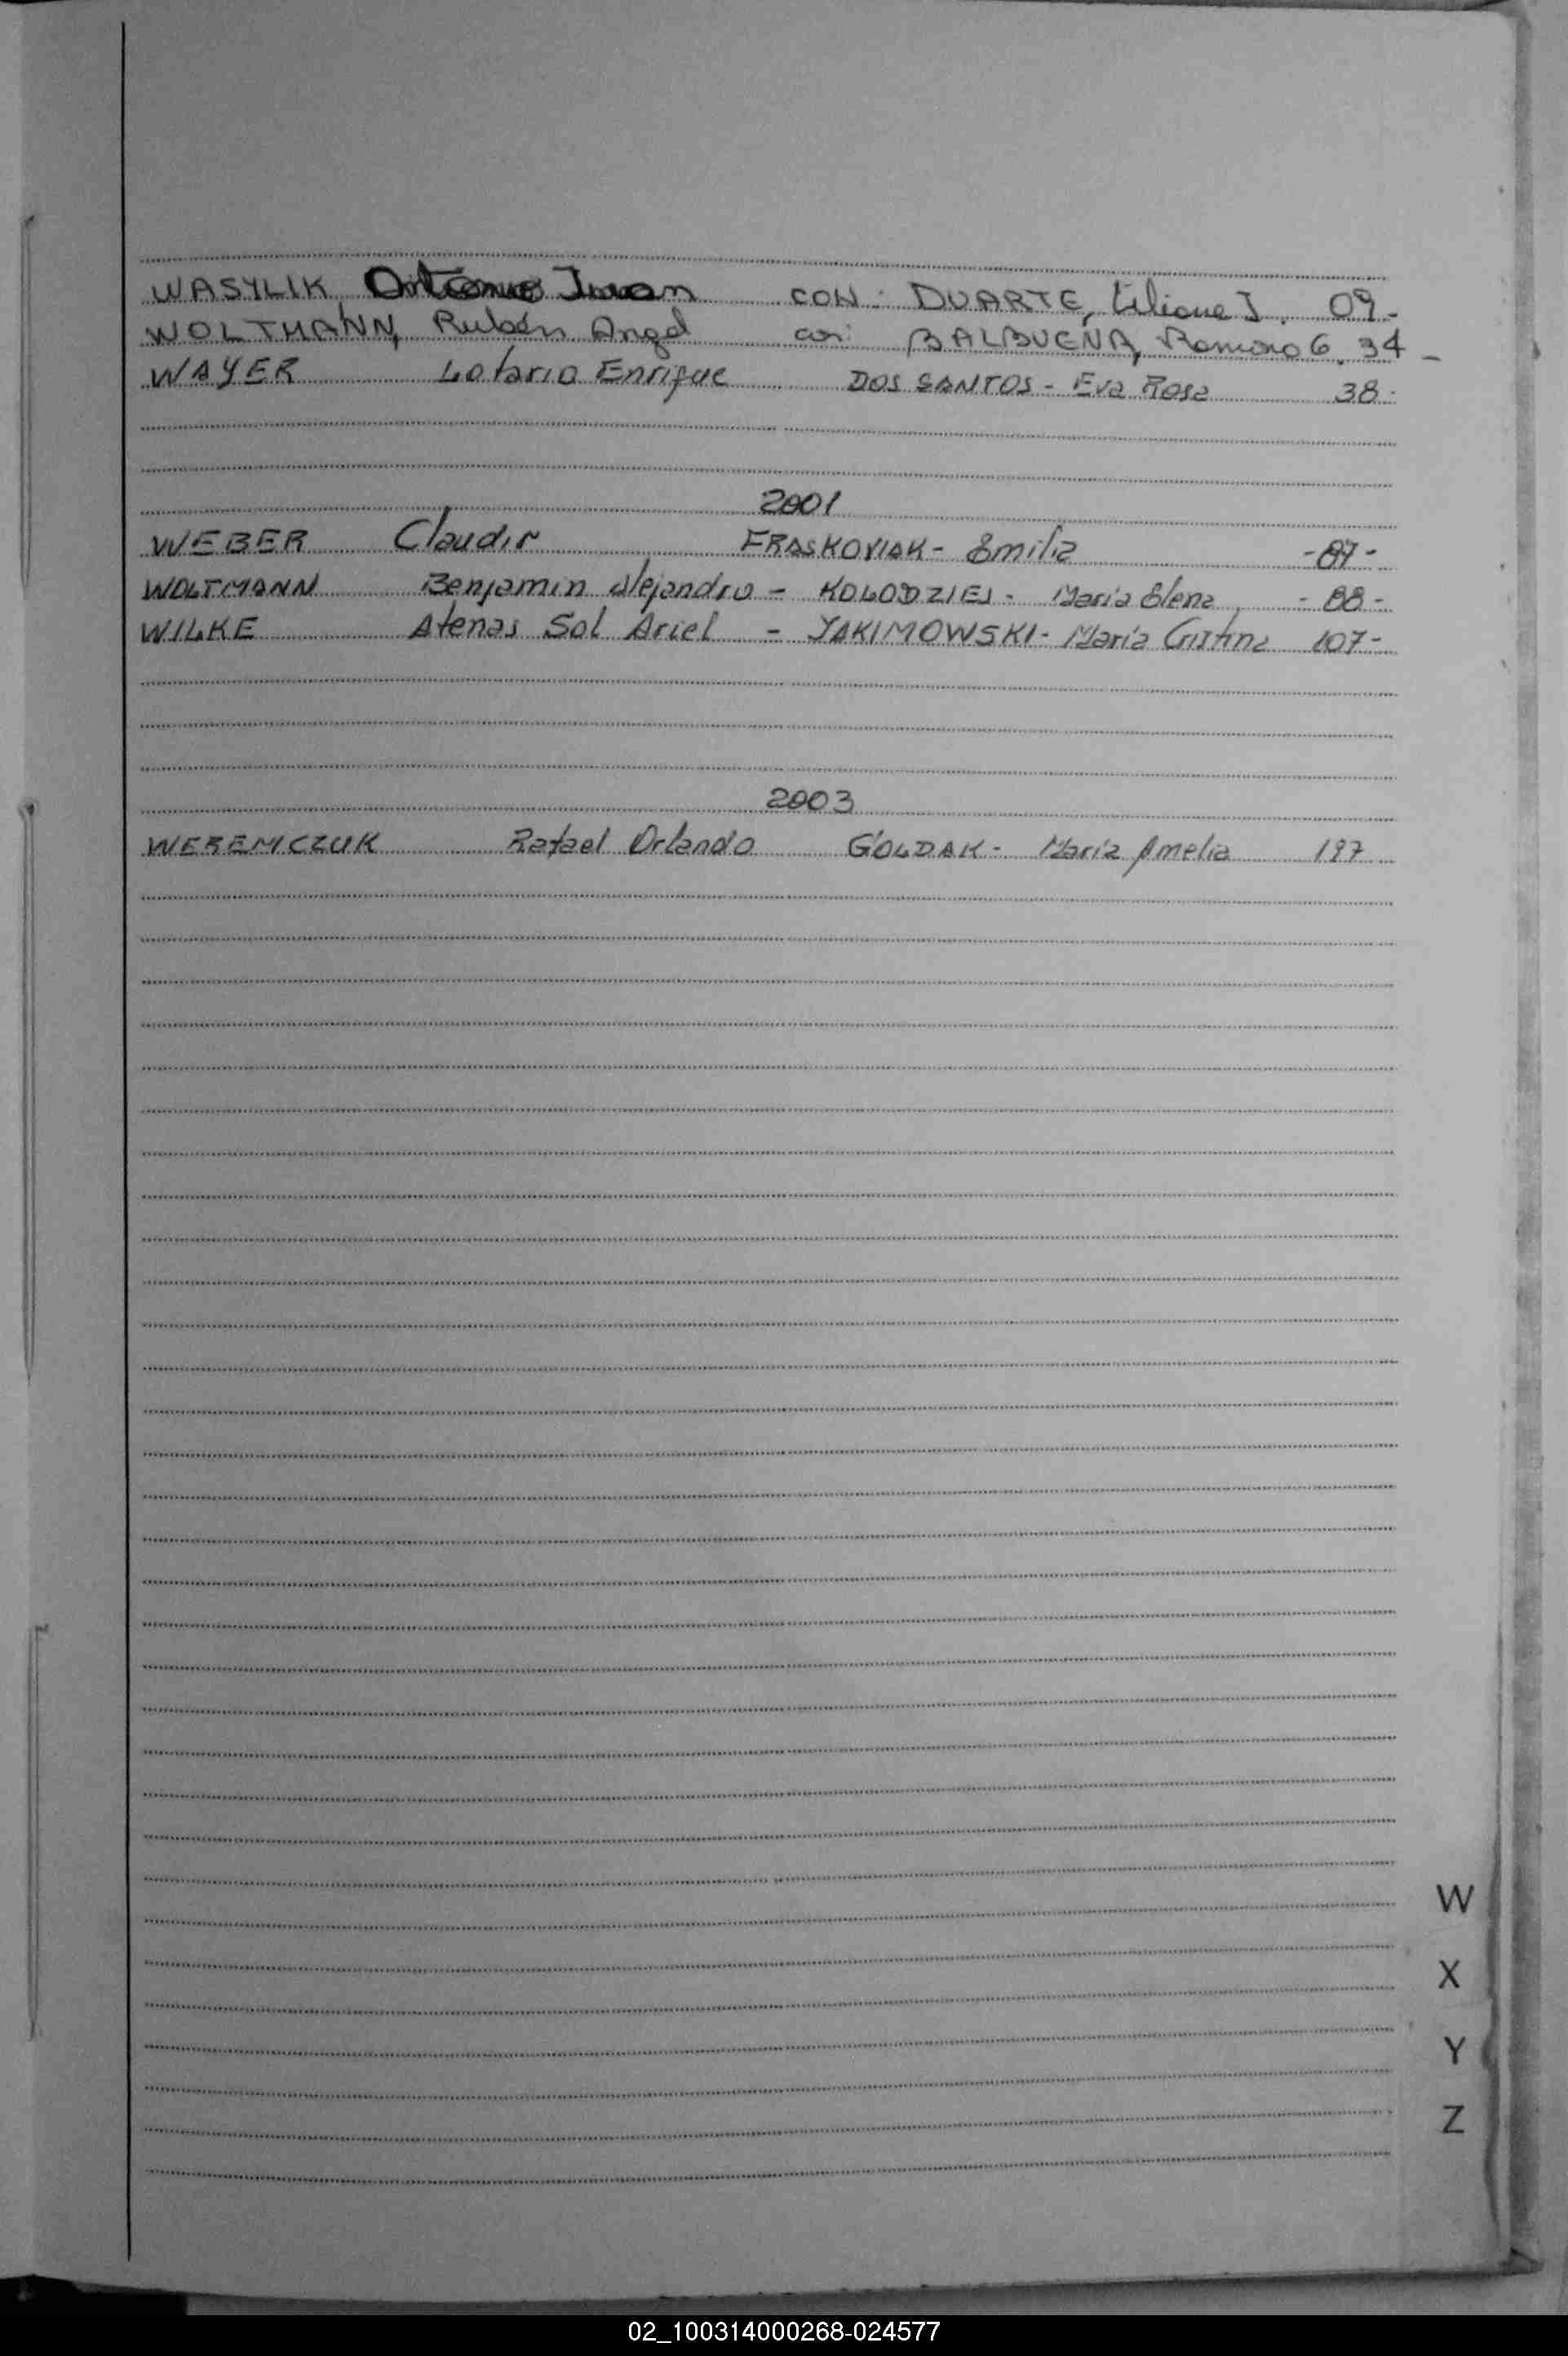 WASYLIK, Antonio Juan CON: DUARTE, Liliana I. 09-
WOLTMANN, Rubén Angel con: BALBUENA, Ramona G. 34-
WAYER Lotario Enrique DOS SANTOS - Eva Rosa 38-
2001
WEBER Claudir FRASKOVIAK - Emilia -87-
WOLTMANN Benjamin Alejandro - KOLODZIEJ - María Elena -88-
WILKE Atenas Sol Ariel - YAKIMOWSKI - María Cristina 107-
2003
WEREMCZUK Rafael Orlando GOLDAK - María Amelia 197
W
X
Y
Z
02_100314000268-024577